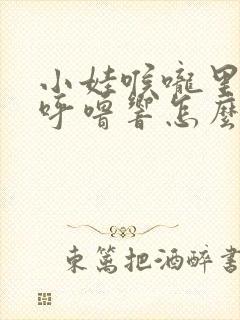 小娃喉嚨里
呼嚕響怎麼
東篱把酒醉書